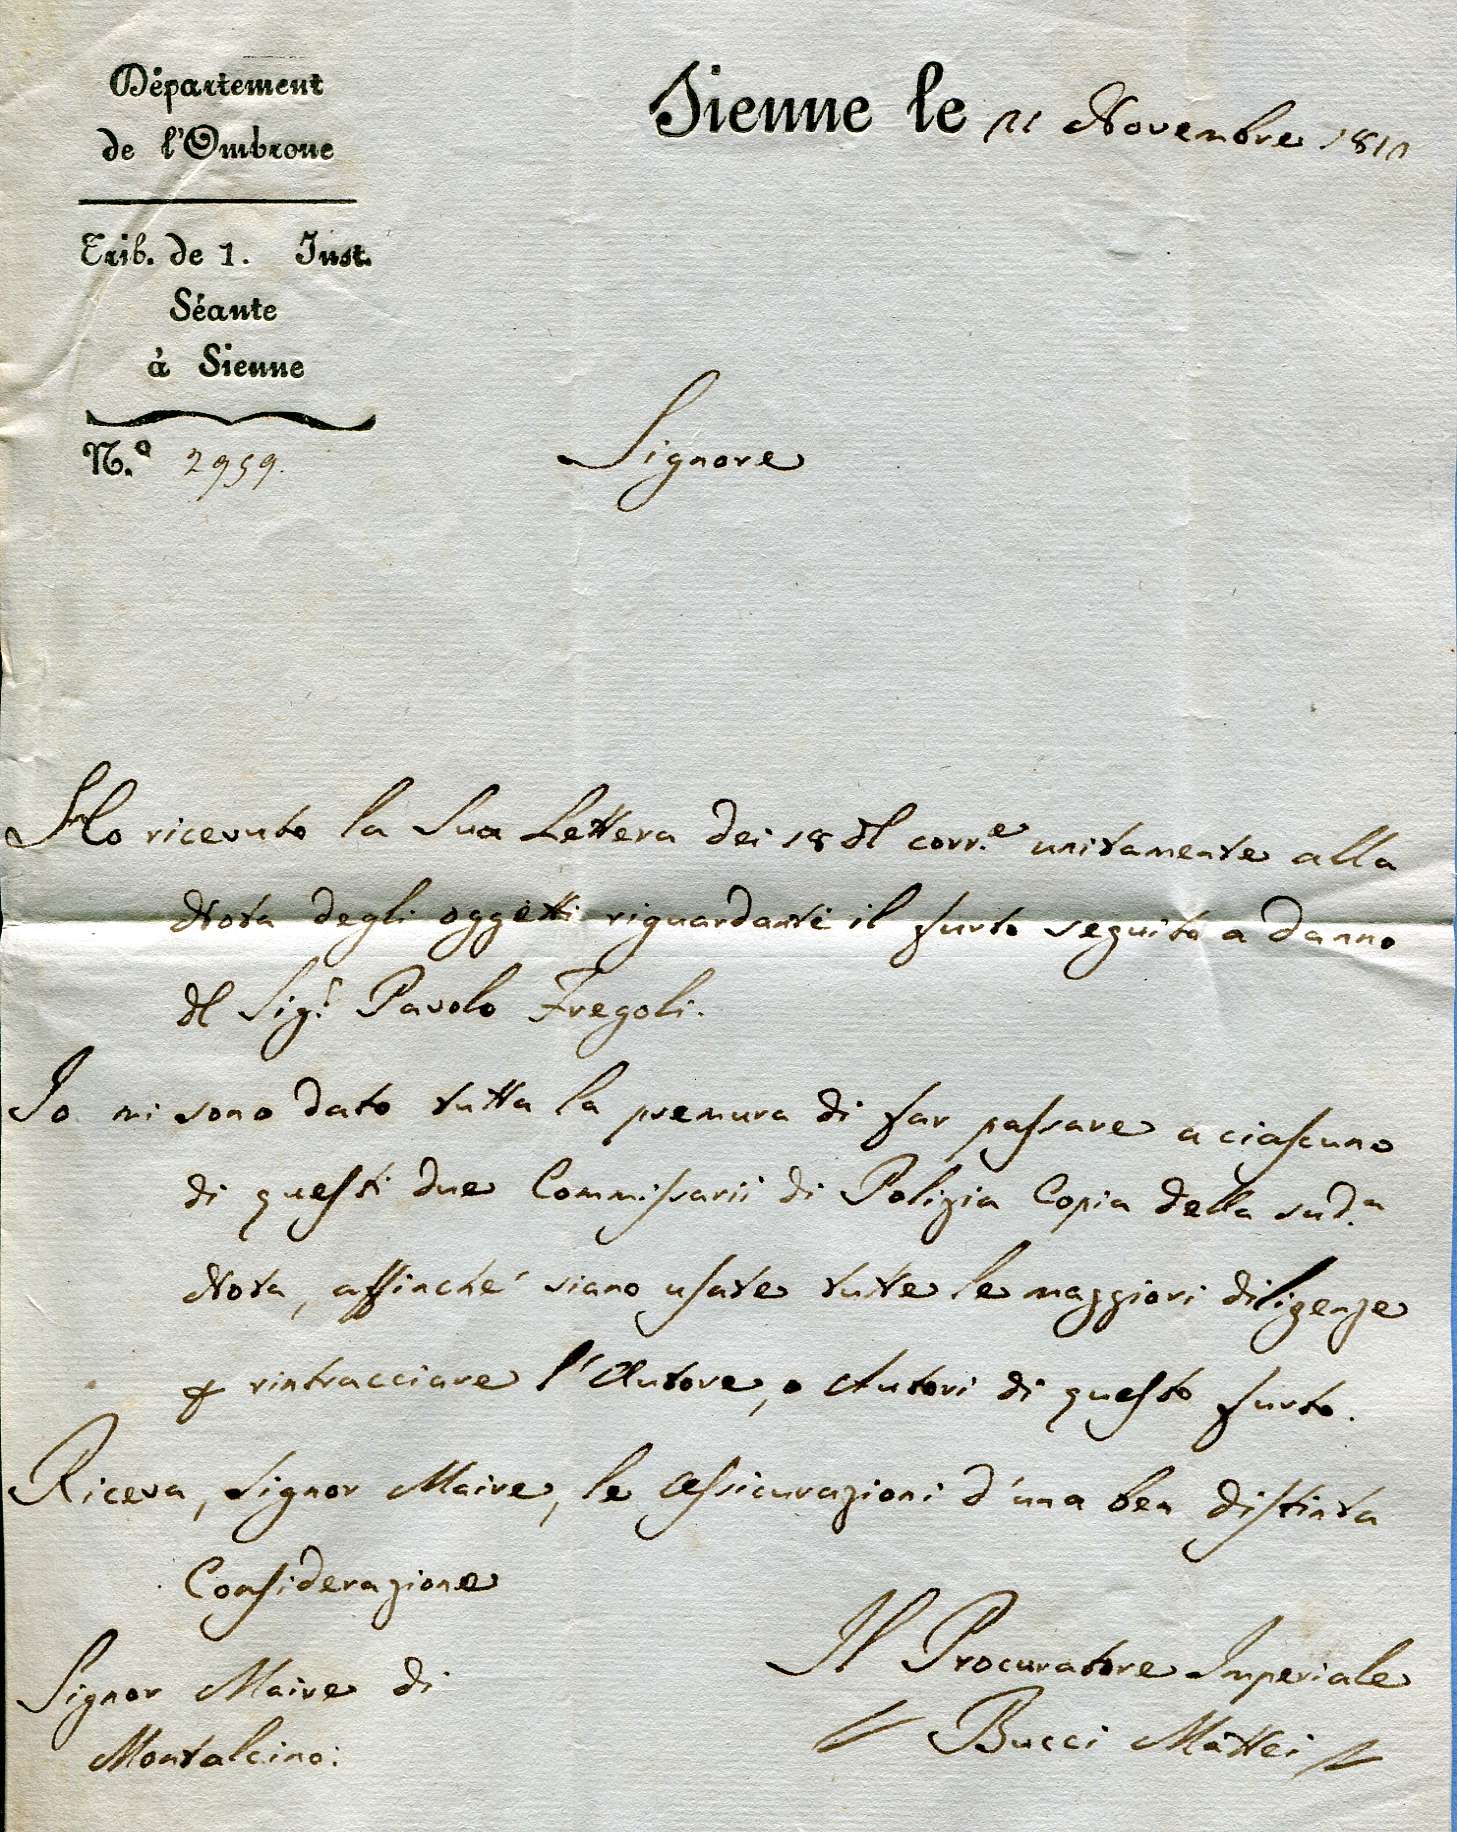 Département
de l'Ombrone
Trib. de 1. Inst.
Séante
à Sienne
N.o 2959.
Sienne le 21 Novembre 1810
Signore
Ho ricevuto la Sua Lettera dei 18 del corr.e unitamente alla
Nota degli oggetti riguardanti il furto seguito a danno
del Sig.r Pavolo Fregoli.
Io mi sono dato tutta la premura di far passare a ciascuno
di questi due Commissarii di Polizia Copia della sud.a
Nota, affinche' siano usate tutte le maggiori diligenze
p rintracciare l'Autore, o Autori di questo furto.
Riceva, Signor Maire, le Assicurazioni d'una ben distinta
Considerazione
Il Procuratore Imperiale
Bucci Mattei
Signor Maire di
Montalcino.